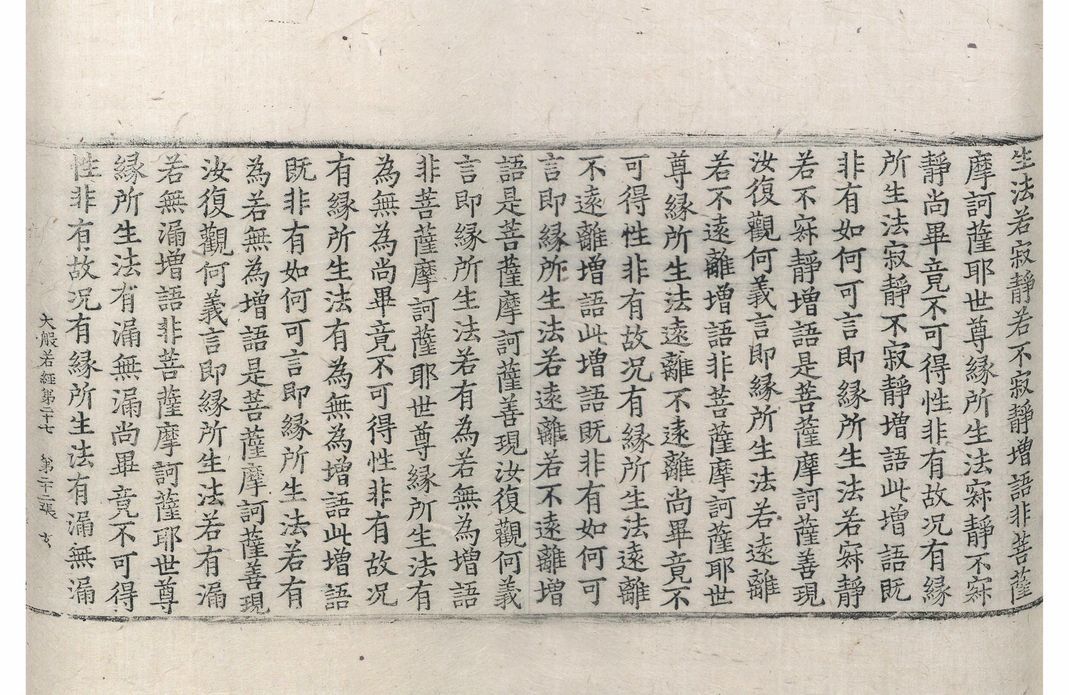 生法若寂靜若不寂靜增語非菩薩
摩訶薩耶世尊緣所生法寂靜不寂
靜尚畢竟不可得性非有故况有緣
所生法寂靜不寂靜增語此增語既
非有如何可言即緣所生法若寂靜
若不寂靜增語是菩薩摩訶薩善現
汝復觀何義言即緣所生法若遠離
若不遠離增語非菩薩摩訶薩耶世
尊緣所生法遠離不遠離尚畢竟不
可得性非有故况有緣所生法遠離
不遠離增語此增語既非有如何可
言即緣所生法若遠離若不遠離增
語是菩薩摩訶薩善現汝復觀何義
言即緣所生法若有為若無為增語
非菩薩摩訶薩耶世尊緣所生法有
為無為尚畢竟不可得性非有故况
有緣所生法有為無為增語此增語
既非有如何可言即緣所生法若有
為若無為增語是菩薩摩訶薩善現
汝復觀何義言即緣所生法若有漏
若無漏增語非菩薩摩訶薩耶世尊
緣所生法有漏無漏尚畢竟不可得
性非有故况有緣所生法有漏無漏
大般若經第二十七 第二十二張